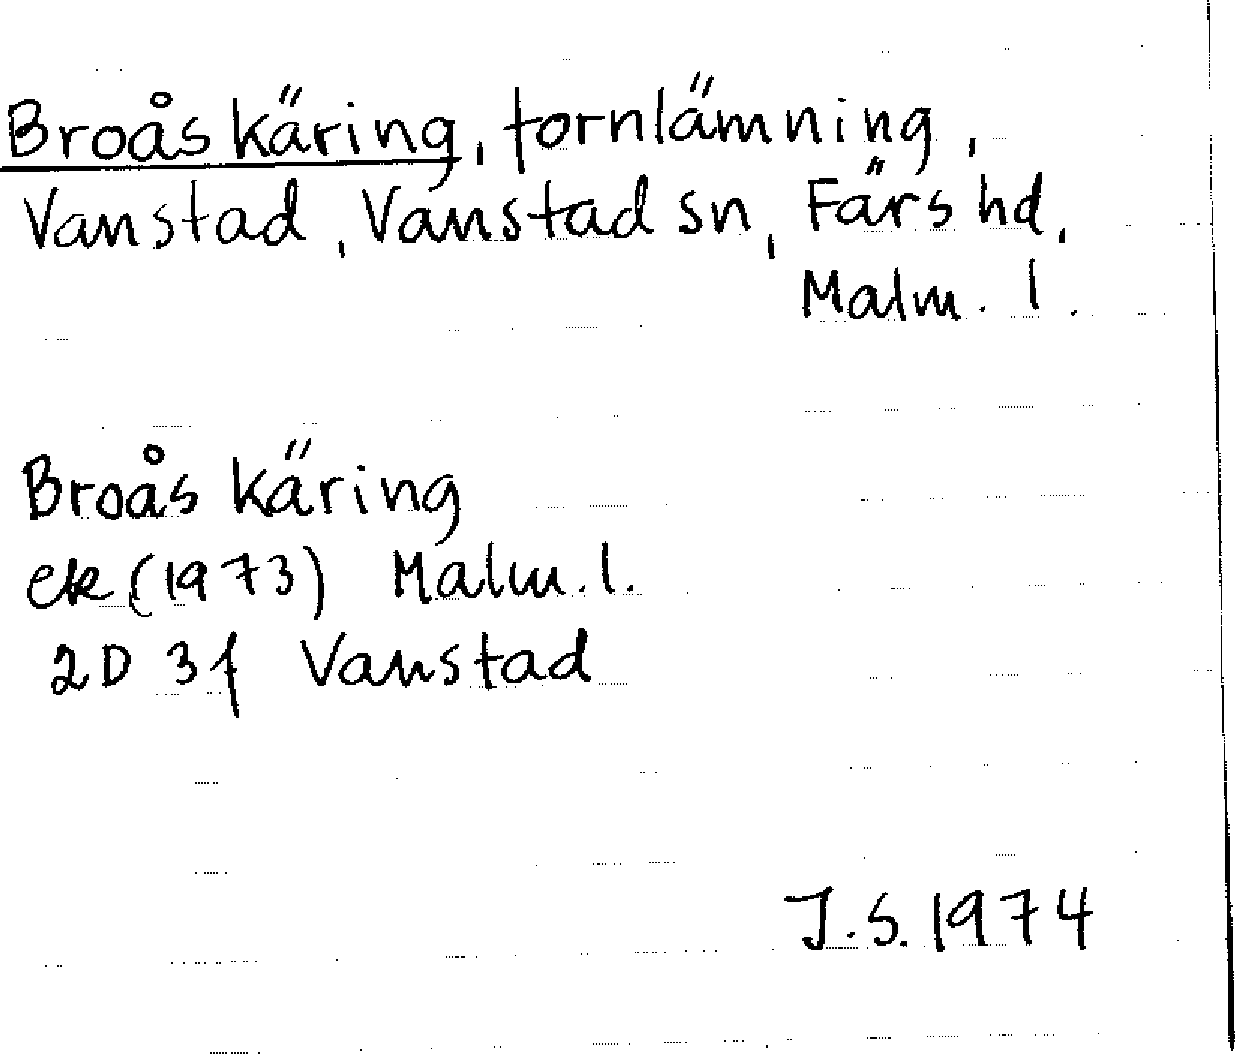 Broås käring, fornlämning,
Vanstad, Vanstad sn, Färs hd,
Malm. l.
Broås käring
ek (1973) Malm. l.
2D 3f Vanstad
J.S. 1974